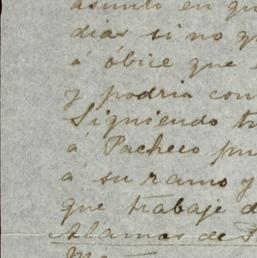 asunto en qu
dias si no q
á óbice que
y podria con
Siguiendo tr
á Pacheco pu
a su ramo y
que trabaje d
Alamos de